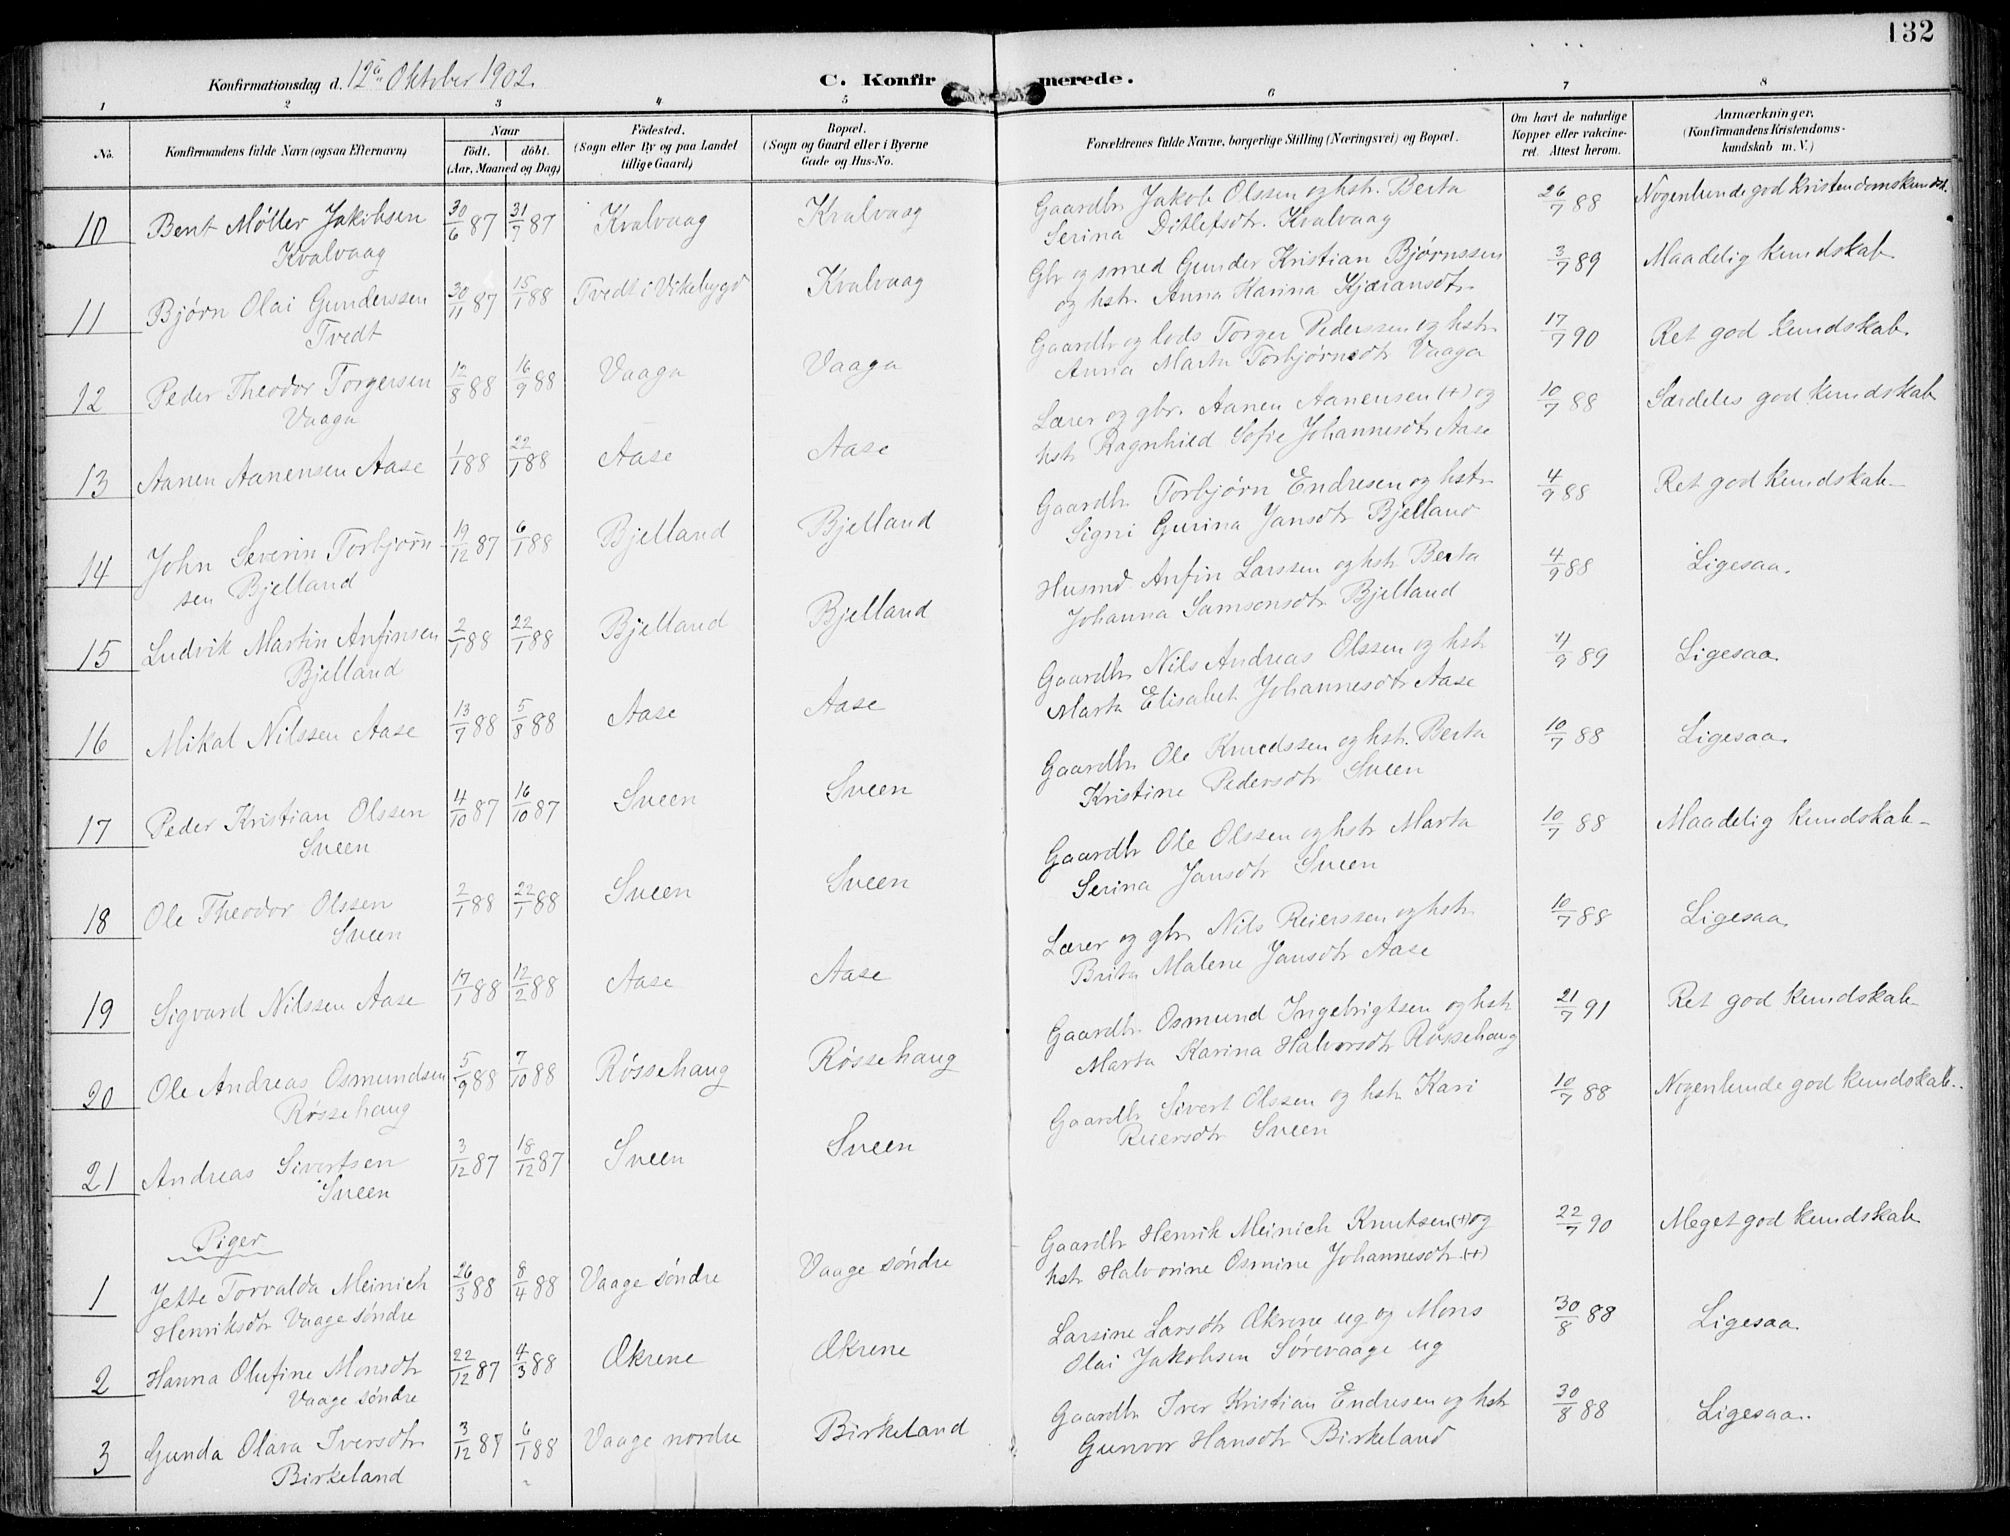 132
Konfirmationsdag d. 12te Oktober 1902.
C. Konfirmerede.
1 2 3 4 5 6 7 8
No.
Konfirmandens fulde Navn (ogsaa Efternavn)
Naar
födt. döbt.
(Aar, Maaned og Dag)
Födested.
(Sogn eller By og paa Landet
tillige Gaard)
Bopæl.
(Sogn og Gaard eller i Byerne
Gade og Hus-No.
Forældrenes fulde Navne, borgerlige Stilling (Næringsvei) og Bopæl.
Om havt de naturlige
Kopper eller vakcine-
ret. Attest herom.
Anmærkninger.
(Konfirmandens Kristendoms-
kundskab m. V.)
10 Bent Møller Jakobsen 30/6 87 31/7 87 Kvalvaag Kvalvaag Gaardbr Jakob Olssen og hstr. Berta 26/7 88 Nogenlunde god kristendomskundsk.
Kvalvaag Serina Ditlefsdtr. Kvalvaag
11 Bjørn Olai Gunderssen 30/11 87 15/1 88 Tvedt i Vikebygd Kvalvaag Gbr og smed Gunder Kristian Bjørnssen 3/7 89 Maadelig kundskab
Tvedt og hstr. Anna Karina Kjæransdtr
12 Peder Theodor Torgersen 12/8 88 16/9 88 Vaaga Vaaga Gaardbr og lods Torger Pederssen og hstr 17/7 90 Ret god kundskab
Vaaga Anna Marta Torbjørnsdtr Vaaga
13 Aanen Aanensen Aase 1/1 88 22/1 88 Aase Aase Lærer og gbr. Aanen Aanensen (+) og 10/7 88 Særdeles god kundskab
hstr Ragnhild Sofie Johannesdtr Aase
14 John Severin Torbjørn 19/12 87 6/1 88 Bjelland Bjelland Gaardbr Torbjørn Endresen og hstr 4/9 88 Ret god kundskab
sen Bjelland Signi Gurina Jansdtr Bjelland
15 Ludvik Martin Anfinsen 2/1 88 22/1 88 Bjelland Bjelland Husmd Anfin Larssen og hstr Berta 4/9 88 Ligesaa.
Bjelland Johanna Samsonsdtr Bjelland
16 Mikal Nilssen Aase 13/7 88 5/8 88 Aase Aase Gaardbr Nils Andreas Olssen og hstr 4/9 89 Ligesaa
Marta Elisabet Johannesdtr Aase
17 Peder Kristian Olssen 4/10 87 16/10 87 Sveen Sveen Gaardbr Ole Knudssen og hstr. Berta 10/7 88 Ligesaa
Sveen Kristine Pedersdtr Sveen
18 Ole Theodor Olssen 2/1 88 22/1 88 Sveen Sveen Gaardbr Ole Olssen og hstr Marta 10/7 88 Maadelig kundskab
Sveen Serina Jansdtr Sveen
19 Sigvard Nilssen Aase 17/1 88 12/2 88 Aase Aase Lærer og gbr Nils Reierssen og hstr 10/7 88 Ligesaa
Brita Malene Jansdtr Aase
20 Ole Andreas Osmundsen 5/9 88 7/10 88 Røssehaug Røssehaug Gaardbr Osmund Ingebrigtsen og hstr 21/7 91 Ret god kundskab
Røssehaug Marta Karina Halvorsdtr Røssehaug
21 Andreas Sivertsen 3/12 87 18/12 87 Sveen Sveen Gaardbr Sivert Olssen og hstr Kari 10/7 88 Nogenlunde god kundskab.
Sveen Reiersdtr Sveen
Piger
1 Jette Torvalda Meinich 26/3 88 8/4 88 Vaage søndre Vaage søndre Gaardbr Henrik Meinich Knutsen (+) og 22/7 90 Meget god kundskab
Henriksdtr Vaage søndre hstr Halvorine Osmine Johannesdtr (+)
2 Hanna Olufine Monsdtr 22/12 87 4/3 88 Økrene Økrene Larsine Larsdtr Økrene ug og Mons 30/8 88 Ligesaa
Vaage søndre Olai Jakobsen Sørevaage ug
3 Gunda Olava Iversdtr 3/12 87 6/1 88 Vaage nordre Birkeland Gaardbr Iver Kristian Endresen og hstr 30/8 88 Ligesaa.
Birkeland Gunvor Hansdtr Birkeland